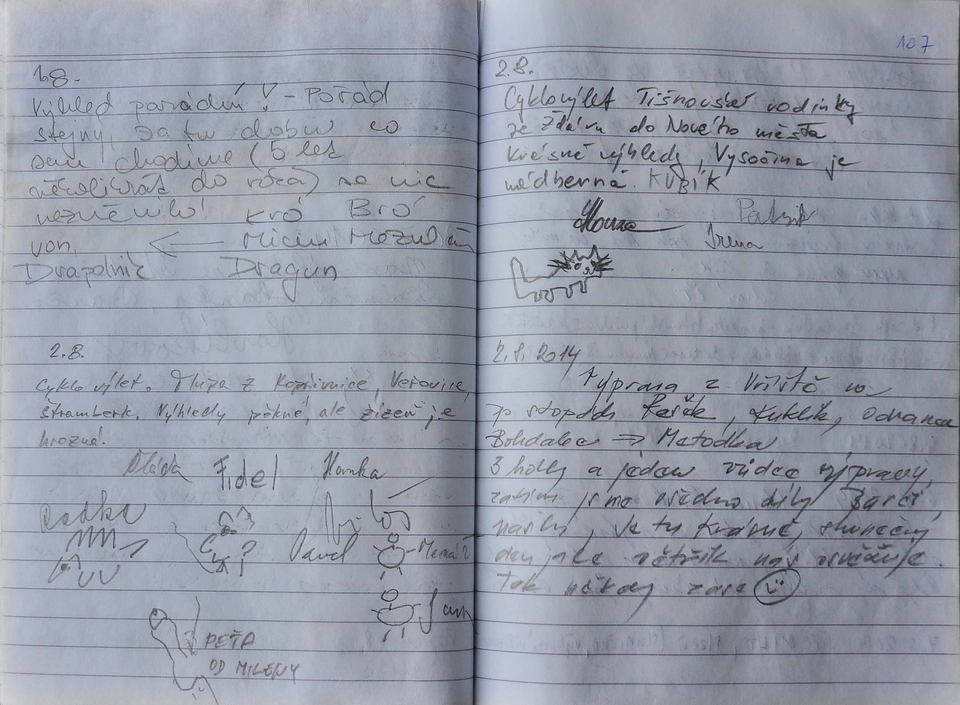 1.8.
Výhled parádní! - Pořád
stejný, za tu dobu co
sem chodíme (5 let
několikrát do roka) se nic
nezměnilo! Kró Bró
von. Micini
Drapolnik Dragun
2.8.
Cyklo výlet. Tlupa z Kopřivnice, Veřovice,
Štramberk, Výhledy pěkné, ale zřízení je
hrozné.
Fidel Hanka
Radka
Pavel
PEŤA
OD MILENY
107
2.8.
Cyklovýlet Tišnovské vodinky
ze Žďáru do Nového města
Krásné výhledy, Vysočina je
nádherná. KUBÍK
Honza Patrik
Irena
2.8.2014
Výprava z Vříště
po stopách Kuklík,
Bohdalec ⇒ Metodka
3 holky a jeden vůdce výpravy,
zatím jsme všechno díky
našly, je tu krásně, slunečný
den, ale větřík nás osvěžuje.
tak někdy zase